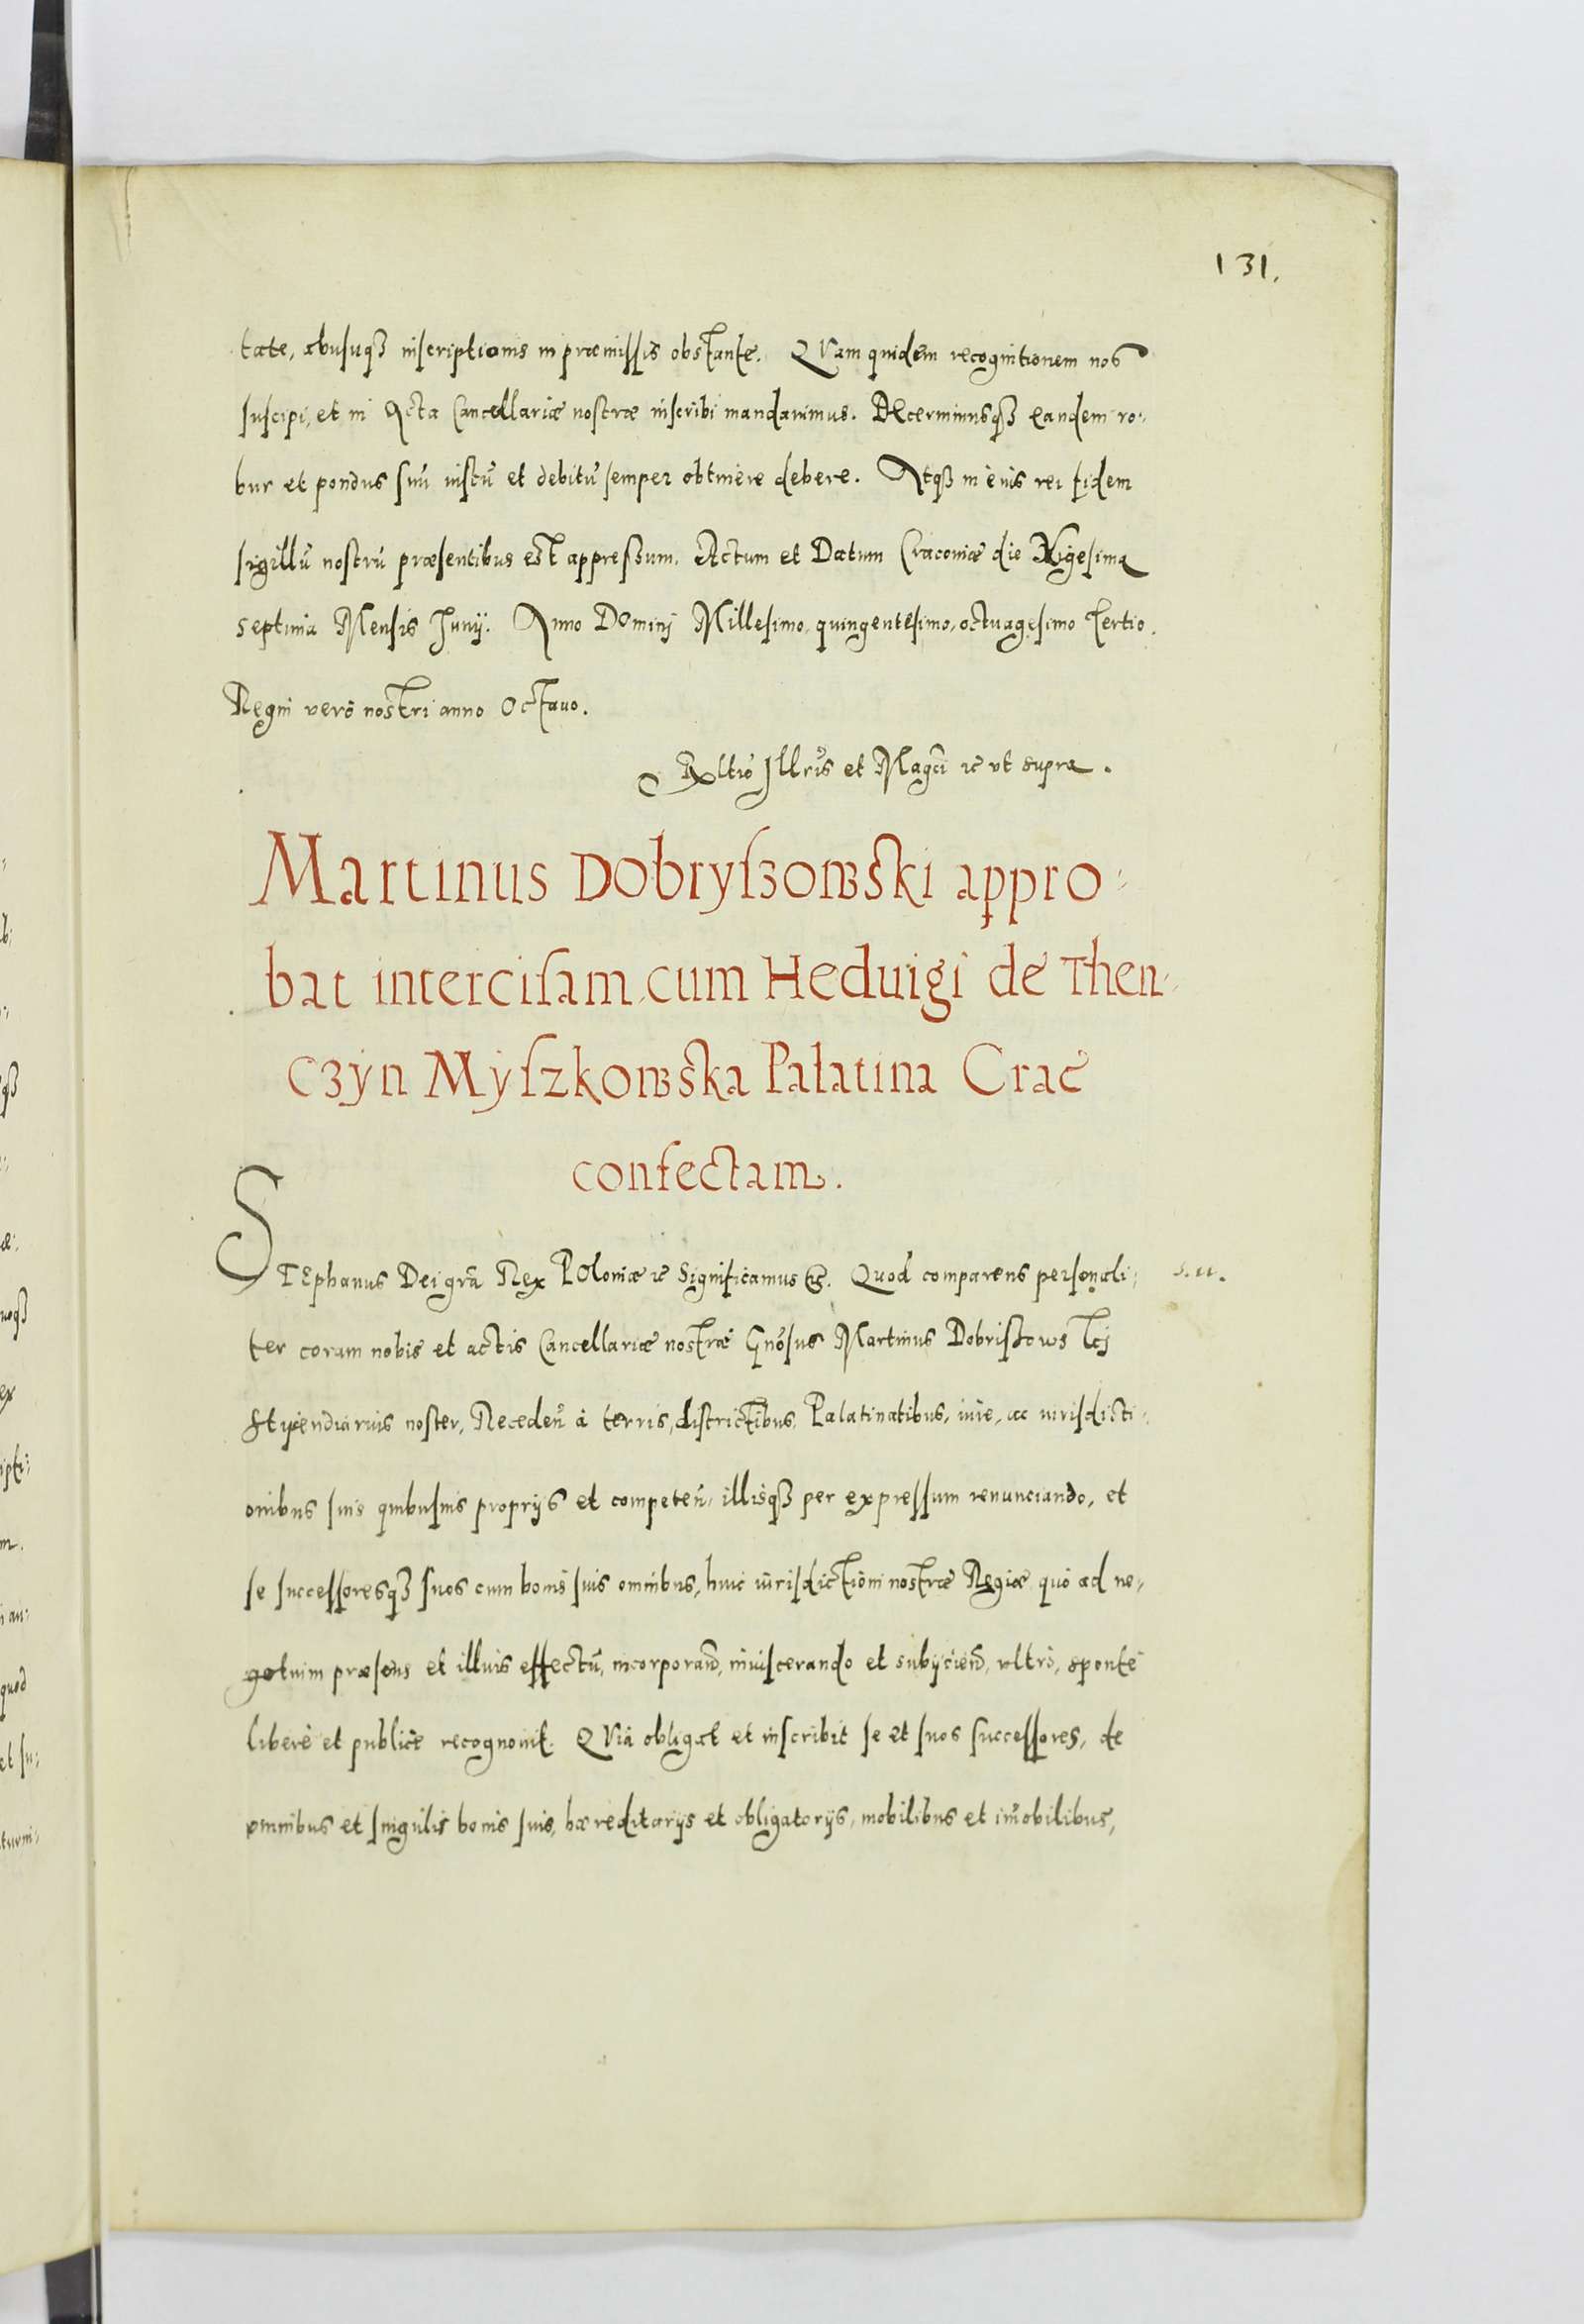 131.
tate, abusuqꝫ inscriptionis in præmissis obstante. QVam quidem recognitionem nos
suscipi, et in Acta Cancellariæ nostræ inscribi mandauimus. DEcernimusqꝫ eandem ro:
bur et pondus suū iustū et debitū semper obtinere debere. Atqꝫ in eius rei fidem
sigillū nostrū præsentibus est appressum. Actum et Datum Cracouiæ die Vigesima
septima Mensis Junij. Anno DOmini Millesimo, quingentesimo, octuagesimo tertio.
Regni verò nostri anno Octauo.
Rltio Illris et Magci ꝛc vt supra.
Martinus DObryszowski appro:
bat intercisam, cum Heduigi de Then:
czyn Myszkowska Palatina Crac
confectam.
STEphanus Dei grā Rex POloniæ ꝛc Significamus ꝛc. Quod comparens personali:
ter coram nobis et actis Cancellariæ nostræ Gnōsus Martinus Dobrissows kj
stipendiarius noster, Receden̄ à terris, districtibus, Palatinatibus, iure, ac iurisdicti:
onibus suis quibusuis proprijs et competen̄, illisqꝫ per expressum renunciando, et
se successoresqꝫ suos cum bonis suis omnibus, huic iurisdictioni nostræ Regiæ quò ad ne:
gotium præsens et illius effectū, incorporan̄d, inuiscerando et subijcien̄d, vltrò, sponte
liberè et publicè recognouit. QVia obligat et inscribit se et suos successores, de
omnibus et singulis bonis suis, hæreditarijs et obligatorijs, mobilibus et im̄obilibus,